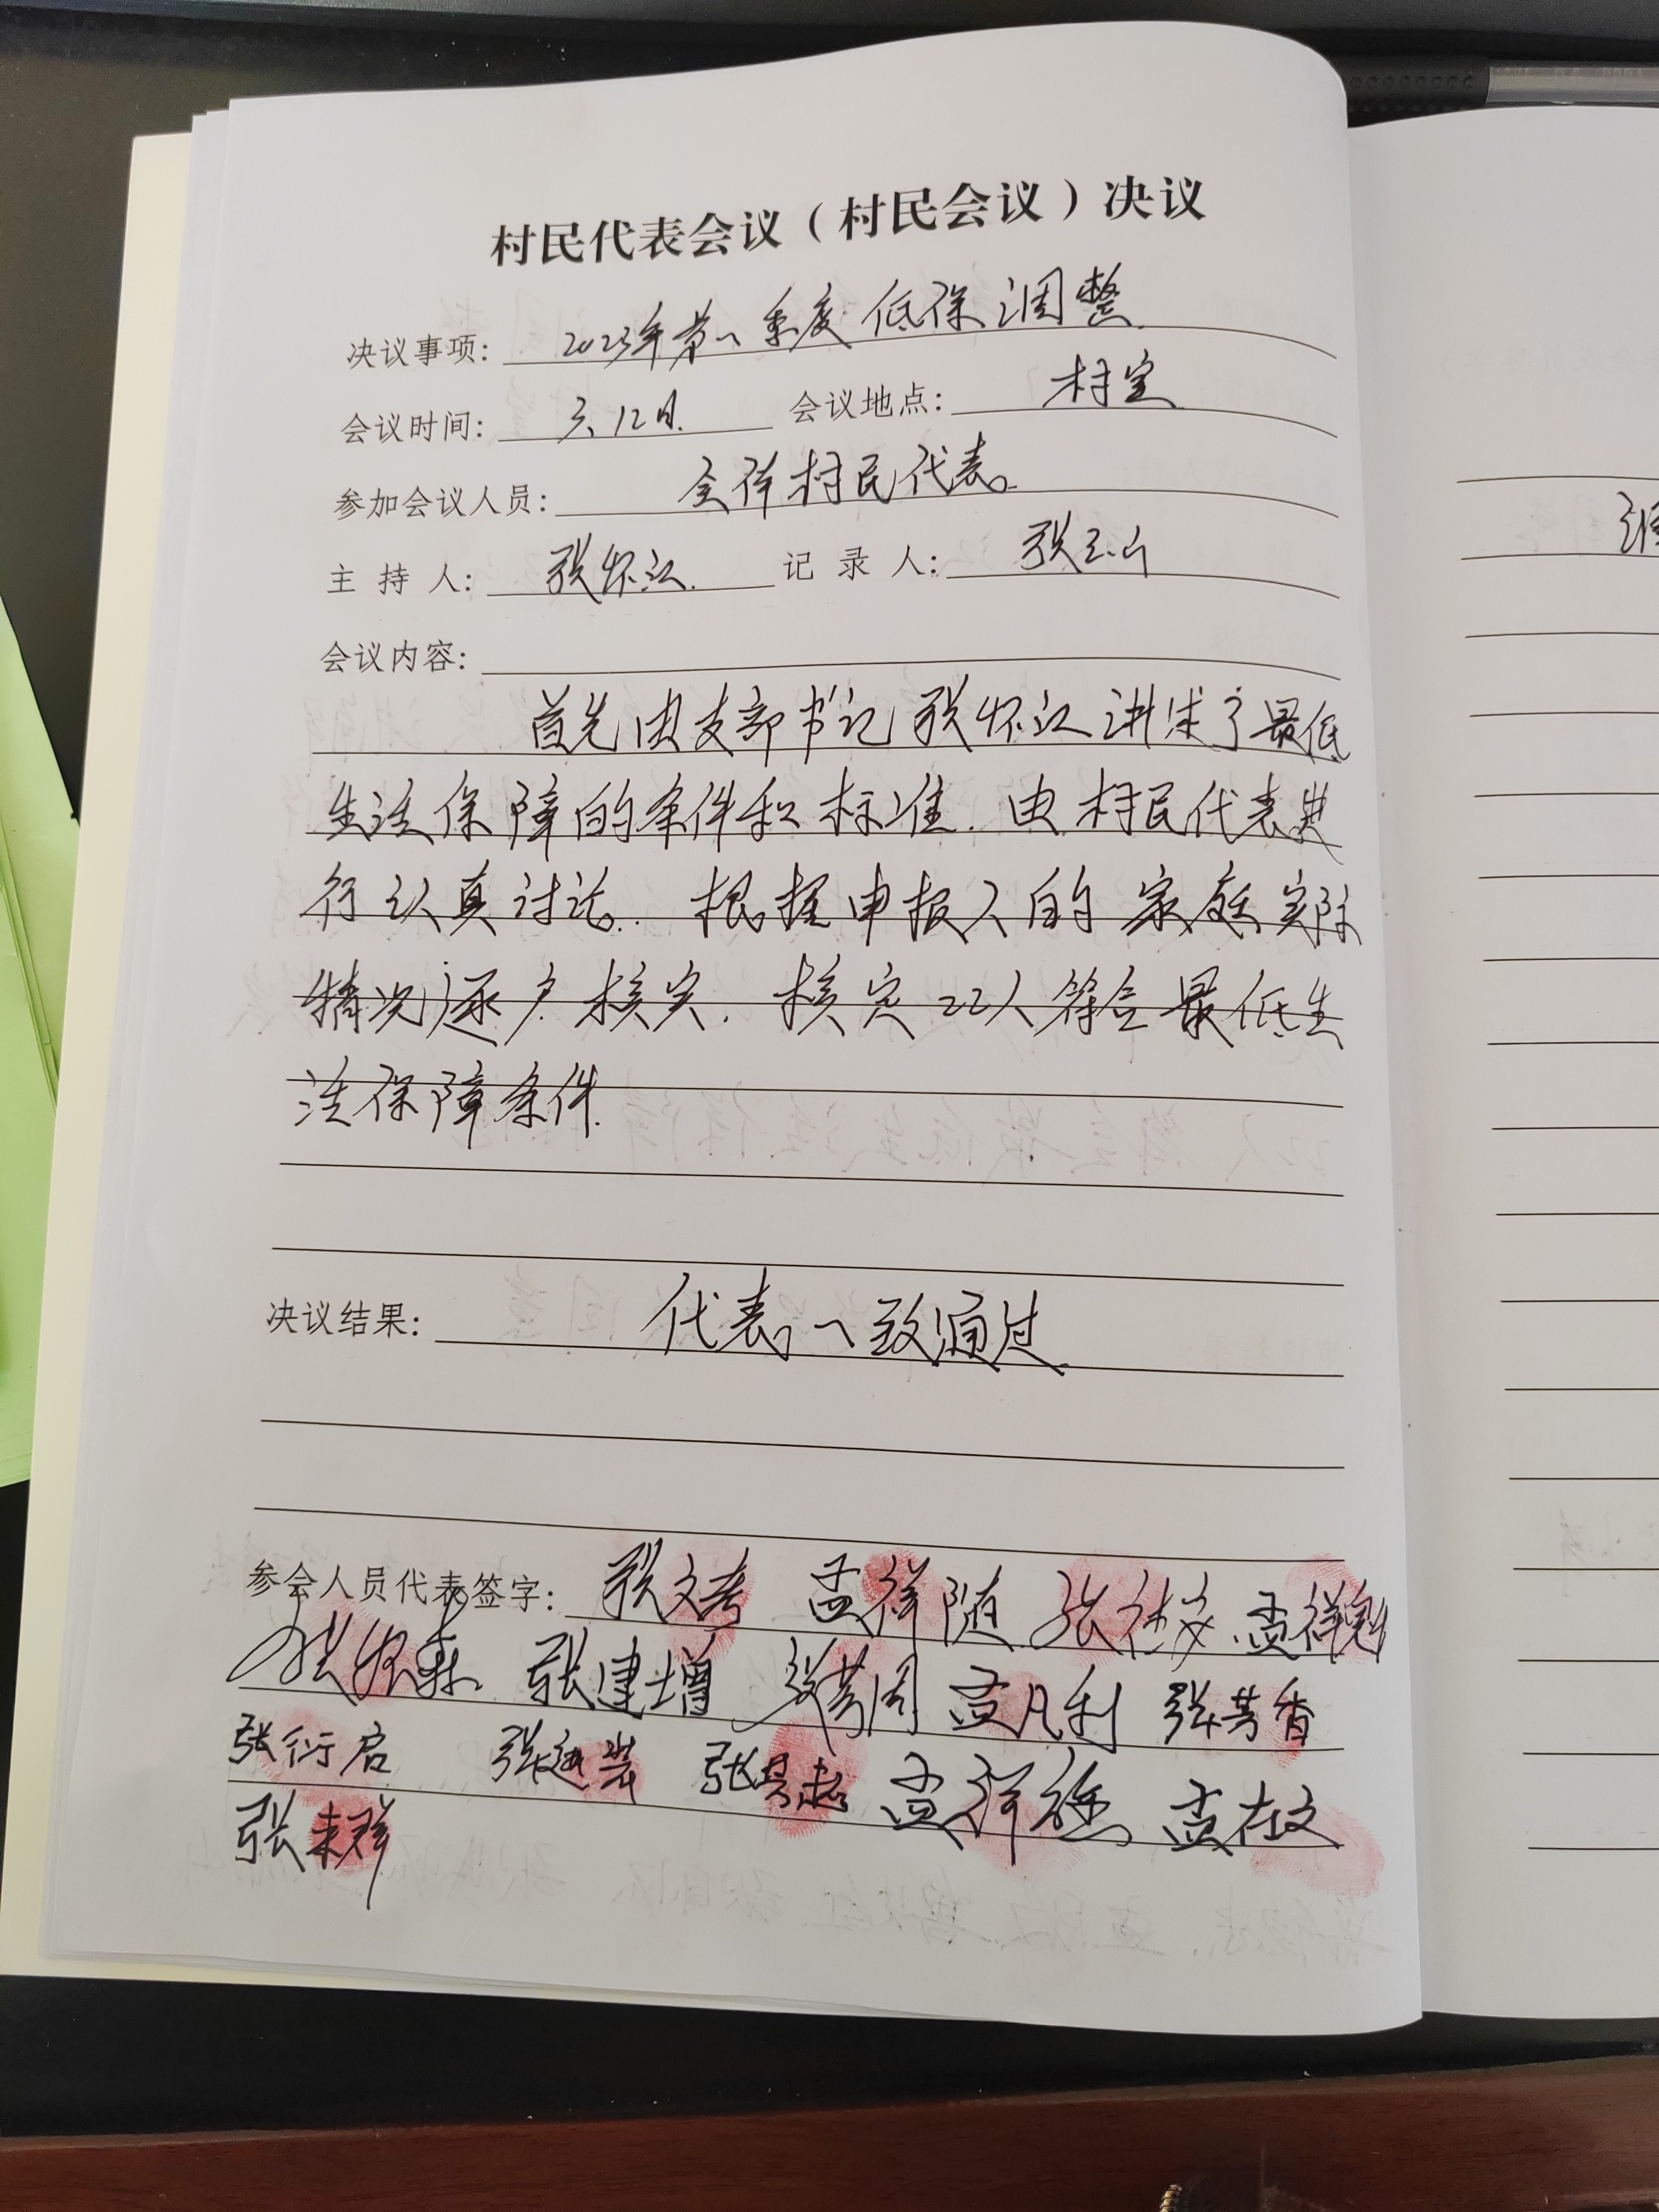 村民代表会议（村民会议）决议
决议事项： 2023年第一季度低保调整
会议时间： 3、12日. 会议地点： 村室
参加会议人员： 全体村民代表
主 持 人： 张怀江 记 录 人： 张玉山
会议内容：
首先由支部书记张怀江讲述了最低
生活保障的条件和标准. 由村民代表进
行认真讨论. 根据申报人的家庭实际
情况逐户核实. 核实22人符合最低生
活保障条件.
决议结果： 代表一致通过
参会人员代表签字： 孟祥随 孟祥
张建增 孟凡利 张芳香
张衍启 孟祥 孟在文
张来群